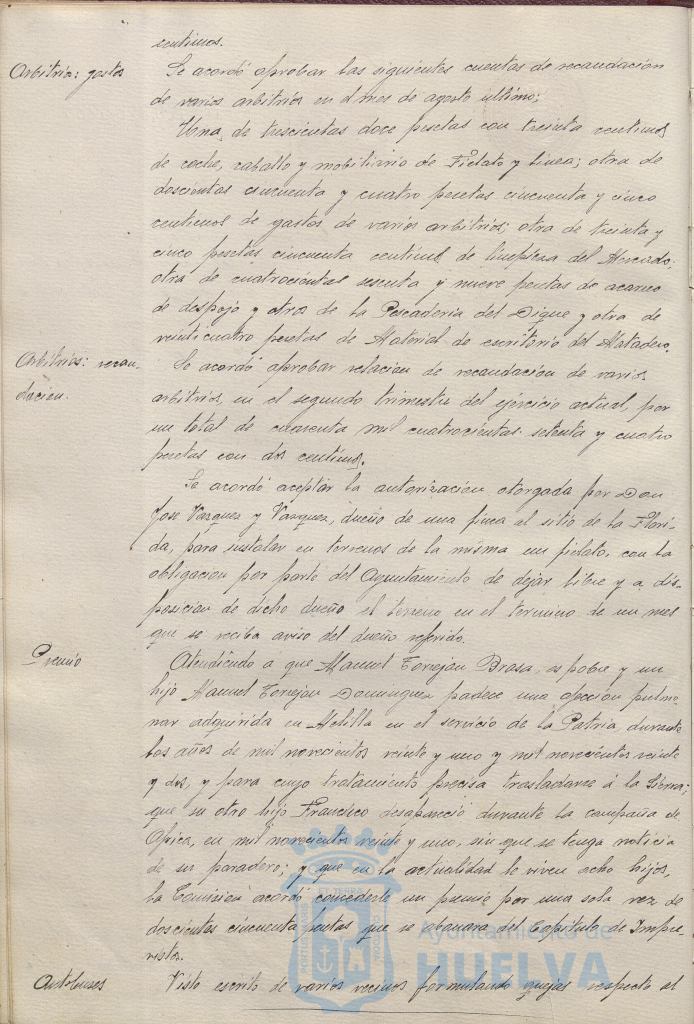 centimos.
Arbitrios: gastos
Se acordó aprobar las siguientes cuentas de recaudación
de varios arbitrios en el mes de agosto último;
Una de trescientas doce pesetas con treinta centimos
de coche, caballo y mobiliario de Fielato y linea; otra de
doscientas cincuenta y cuatro pesetas cincuenta y cinco
centimos de gastos de varios arbitrios; otra de treinta y
cinco pesetas cincuenta centimos de limpieza del Mercado.
otra de cuatrocientas sesenta y nueve pesetas de acarreo
de despojo y otros de la Pescaderia del Dique y otra de
veinticuatro pesetas de Material de escritorio del Matadero.
Arbitrios: recau-
dación.
Se acordó aprobar relacion de recaudacion de varios
arbitrios, en el segundo trimestre del ejercicio actual, por
un total de cuarenta mil cuatrocientas setenta y cuatro
pesetas con dos centimos.
Se acordó aceptar la autorizacion otorgada por Don
Jose Vazquez y Vazquez, dueño de una finca al sitio de la Flori-
da, para instalar en terrenos de la misma un fielato, con la
obligacion por parte del Ayuntamiento de dejar libre y a dis-
posicion de dicho dueño el terreno en el termino de un mes
que se reciba aviso del dueño referido.
Premio
Atendiendo a que Manuel Torrejon Brosa, es pobre y un
hijo Manuel Torrejon Dominguez padece una afeccion pulmo-
nar adquirida en Melilla en el servicio de la Patria, durante
los años de mil novecientos veinte y uno y mil novecientos veinte
y dos, y para cuyo tratamiento precisa trasladarse á la Sierra;
que su otro hijo Francisco desapareció durante la campaña de
Africa, en mil novecientos veinte y uno, sin que se tenga noticia
de su paradero; y que en la actualidad le viven ocho hijos,
la Comision acordó concederle un premio por una sola vez de
doscientas cincuenta pesetas que se abonara del Capitulo de Impre-
vistos.
Autobuses
Visto escrito de varios vecinos formulando quejas respecto al
Ayuntamiento de
HUELVA